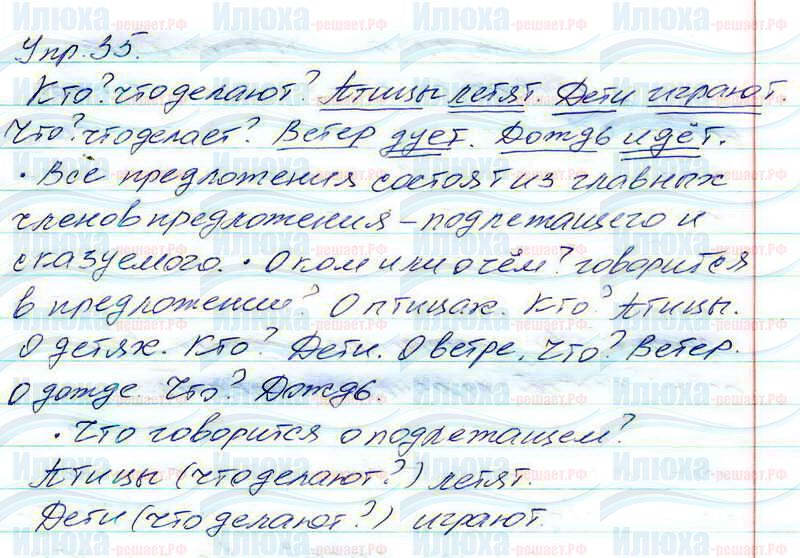 Упр. 35.
Кто? что делают? Птицы летят. Дети играют.
Что? что делает? Ветер дует. Дождь идёт.
• Все предложения состоят из главных
членов предложения – подлежащего и
сказуемого. • О ком или о чём? говорится
в предложении? О птицах. Кто? Птицы.
О детях. Кто? Дети. О ветре. Что? Ветер.
О дожде. Что? Дождь.
• Что говорится о подлежащем?
Птицы (что делают?) летят.
Дети (что делают?) играют.